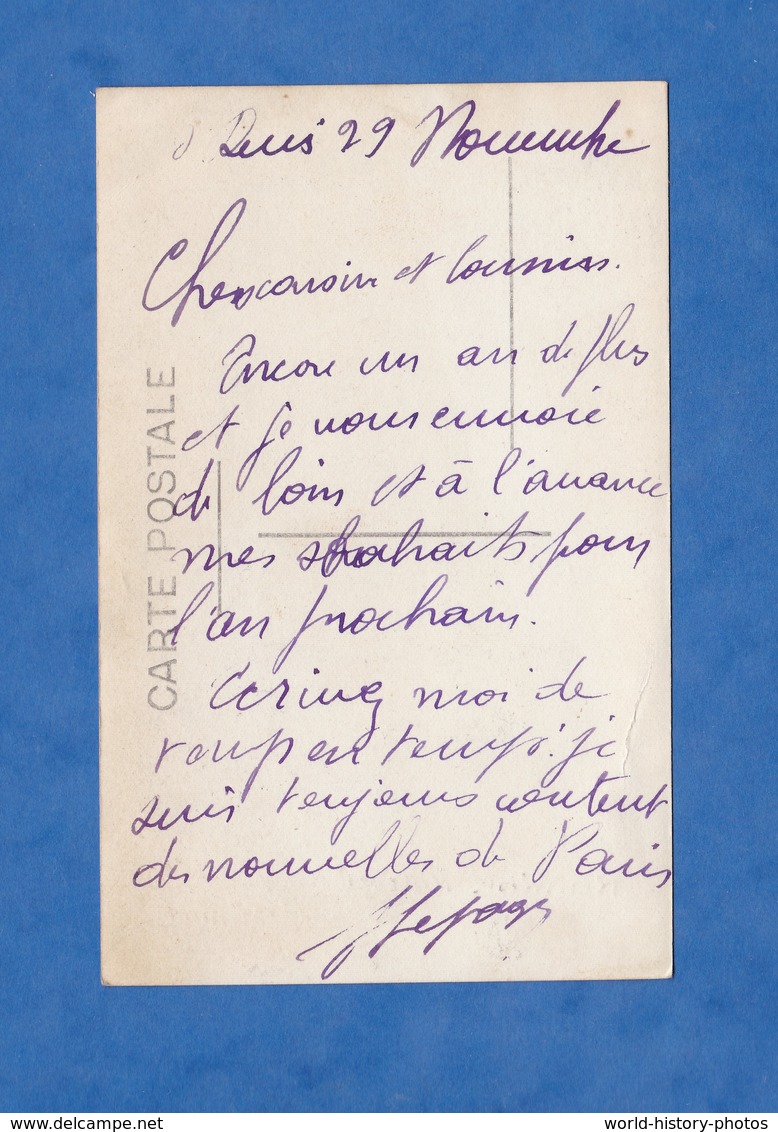 29 Novembre
Chers cousin et cousines.
Encore un an de plus
et je vous envoie
de loin et à l'avance
mes souhaits pour
l'an prochain.
Ecrivez moi de
temps en temps. je
suis toujours content
des nouvelles de Paris
CARTE POSTALE
www.delcampe.net
world-history-photos